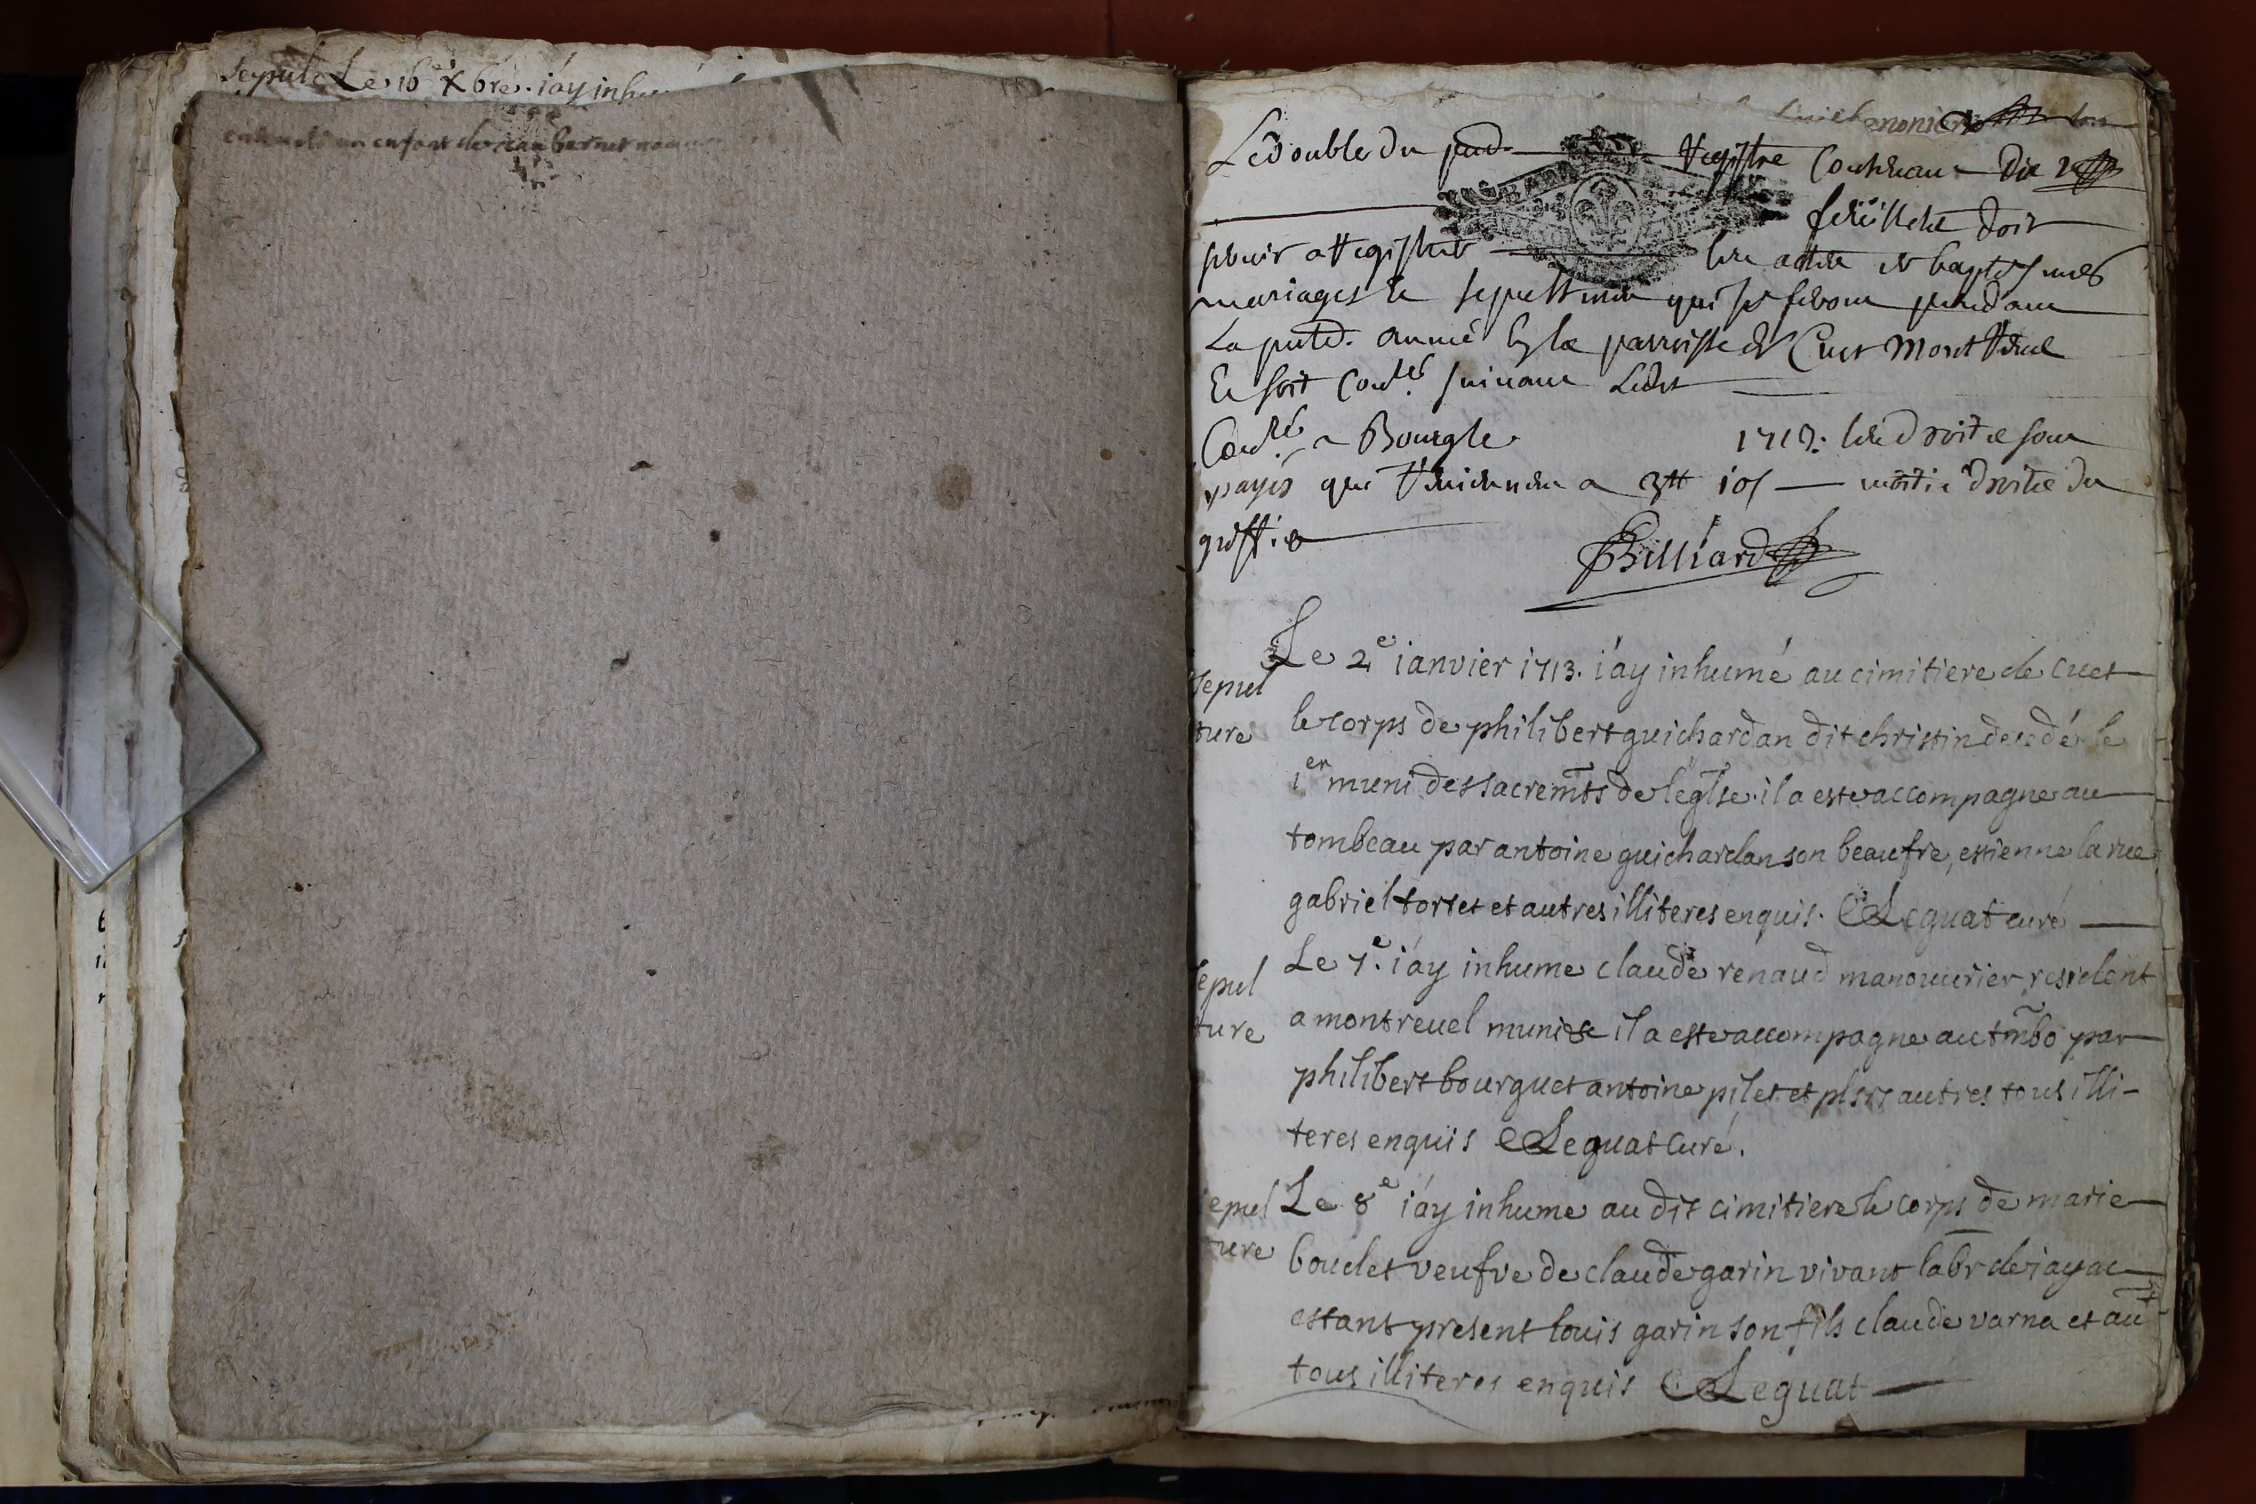 sepult Le 16e Xbre. iay inhu
un enfant de
moniere
Le Double du pnt Registre Contenant Dix
feüillets Doit
servir a Registrer les actes de baptesmes
mariages & sepultures qui se feront pendant
La pnte. année En la parroisse de Cuet Montrevel
Et soit Conté. suivant Ledit
Conté. a Bourg le 1713. les droits sont
payés qui reviennent a 3tt 10s moitié droits du
greffie
Billiard
sepul
ture
Le 2e ianvier 1713. i'ay inhumé au cimitiere de cuet
le corps de philibert guichardan dit christin decedé le
1er muni des sacremts de leglse. il a este accompagne au
tombeau par antoine guichardan son beaufre, estienne la rue
gabriel tortet et autres illiteres enquis. Leguat curé
sepul
ture
Le 7e. i'ay inhume claude renaud manouurier resident
a montreuel muni &c il a este accompagne au tmbo par
philibert bourguet antoine pilet et plsrs autres tous illi-
teres enquis Leguat Curé.
epul
ture
Le 8e i'ay inhume au dit cimitiere le corps de marie
boudet veufve de claude garin vivant labr de iayac
estant present louis garin son fils claude varna et aut
tous illiteres enquis Leguat